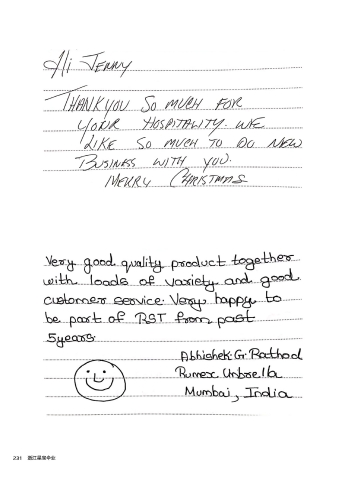 Hi Jenny
Thank you so much for
your hospitality. We
like so much to do new
Business with you.
Merry Christmas
Very good quality product together
with loads of variety and good
customer service. Very happy to
be part of RST from past
5years
Abhishek. G. Rathod
Rumex Umbrella
Mumbai, India
231